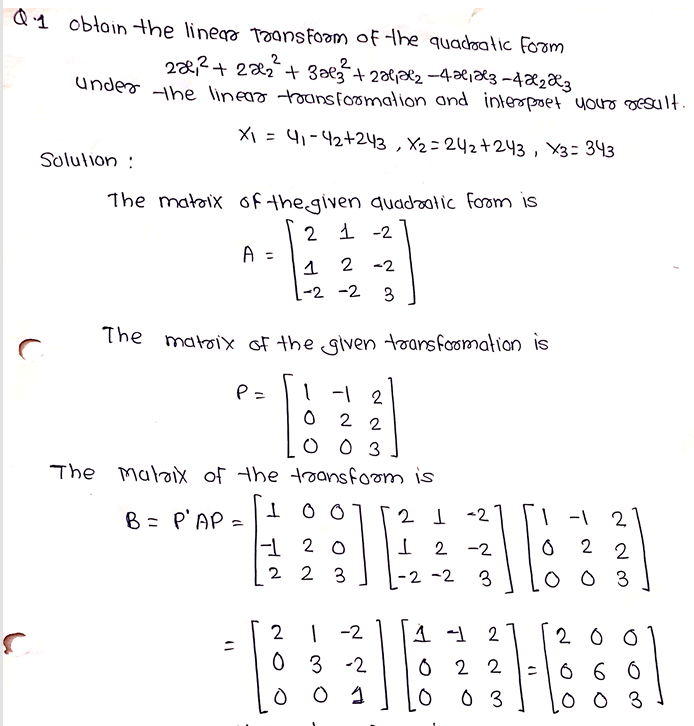 Q.1 obtain the linear Transform of the quadratic Form
2x₁² + 2x₂² + 3x₃² + 2x₁x₂ - 4x₁x₃ - 4x₂x₃
under the linear transformation and interpret your result.
x₁ = y₁ - y₂ + 2y₃ , x₂ = 2y₂ + 2y₃ , x₃ = 3y₃
Solution :
The matrix of the given quadratic form is
A = [ 2 1 -2
1 2 -2
-2 -2 3 ]
The matrix of the given transformation is
P = [ 1 -1 2
0 2 2
0 0 3 ]
The matrix of the transform is
B = P'AP = [ 1 0 0 ] [ 2 1 -2 ] [ 1 -1 2 ]
[ -1 2 0 ] [ 1 2 -2 ] [ 0 2 2 ]
[ 2 2 3 ] [ -2 -2 3 ] [ 0 0 3 ]
= [ 2 1 -2 ] [ 1 -1 2 ] = [ 2 0 0 ]
[ 0 3 -2 ] [ 0 2 2 ] [ 0 6 0 ]
[ 0 0 1 ] [ 0 0 3 ] [ 0 0 3 ]